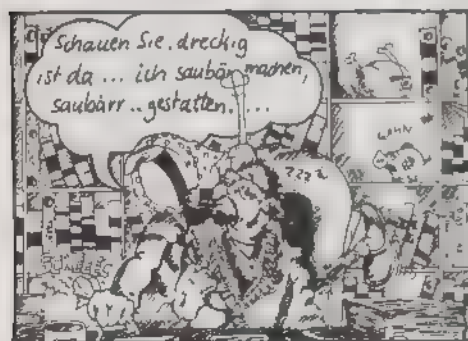 Schauen Sie, dreckig
ist da ... ich saubär machen,
saubärr .. gestatten. ...
GÄHN
ZZZZ